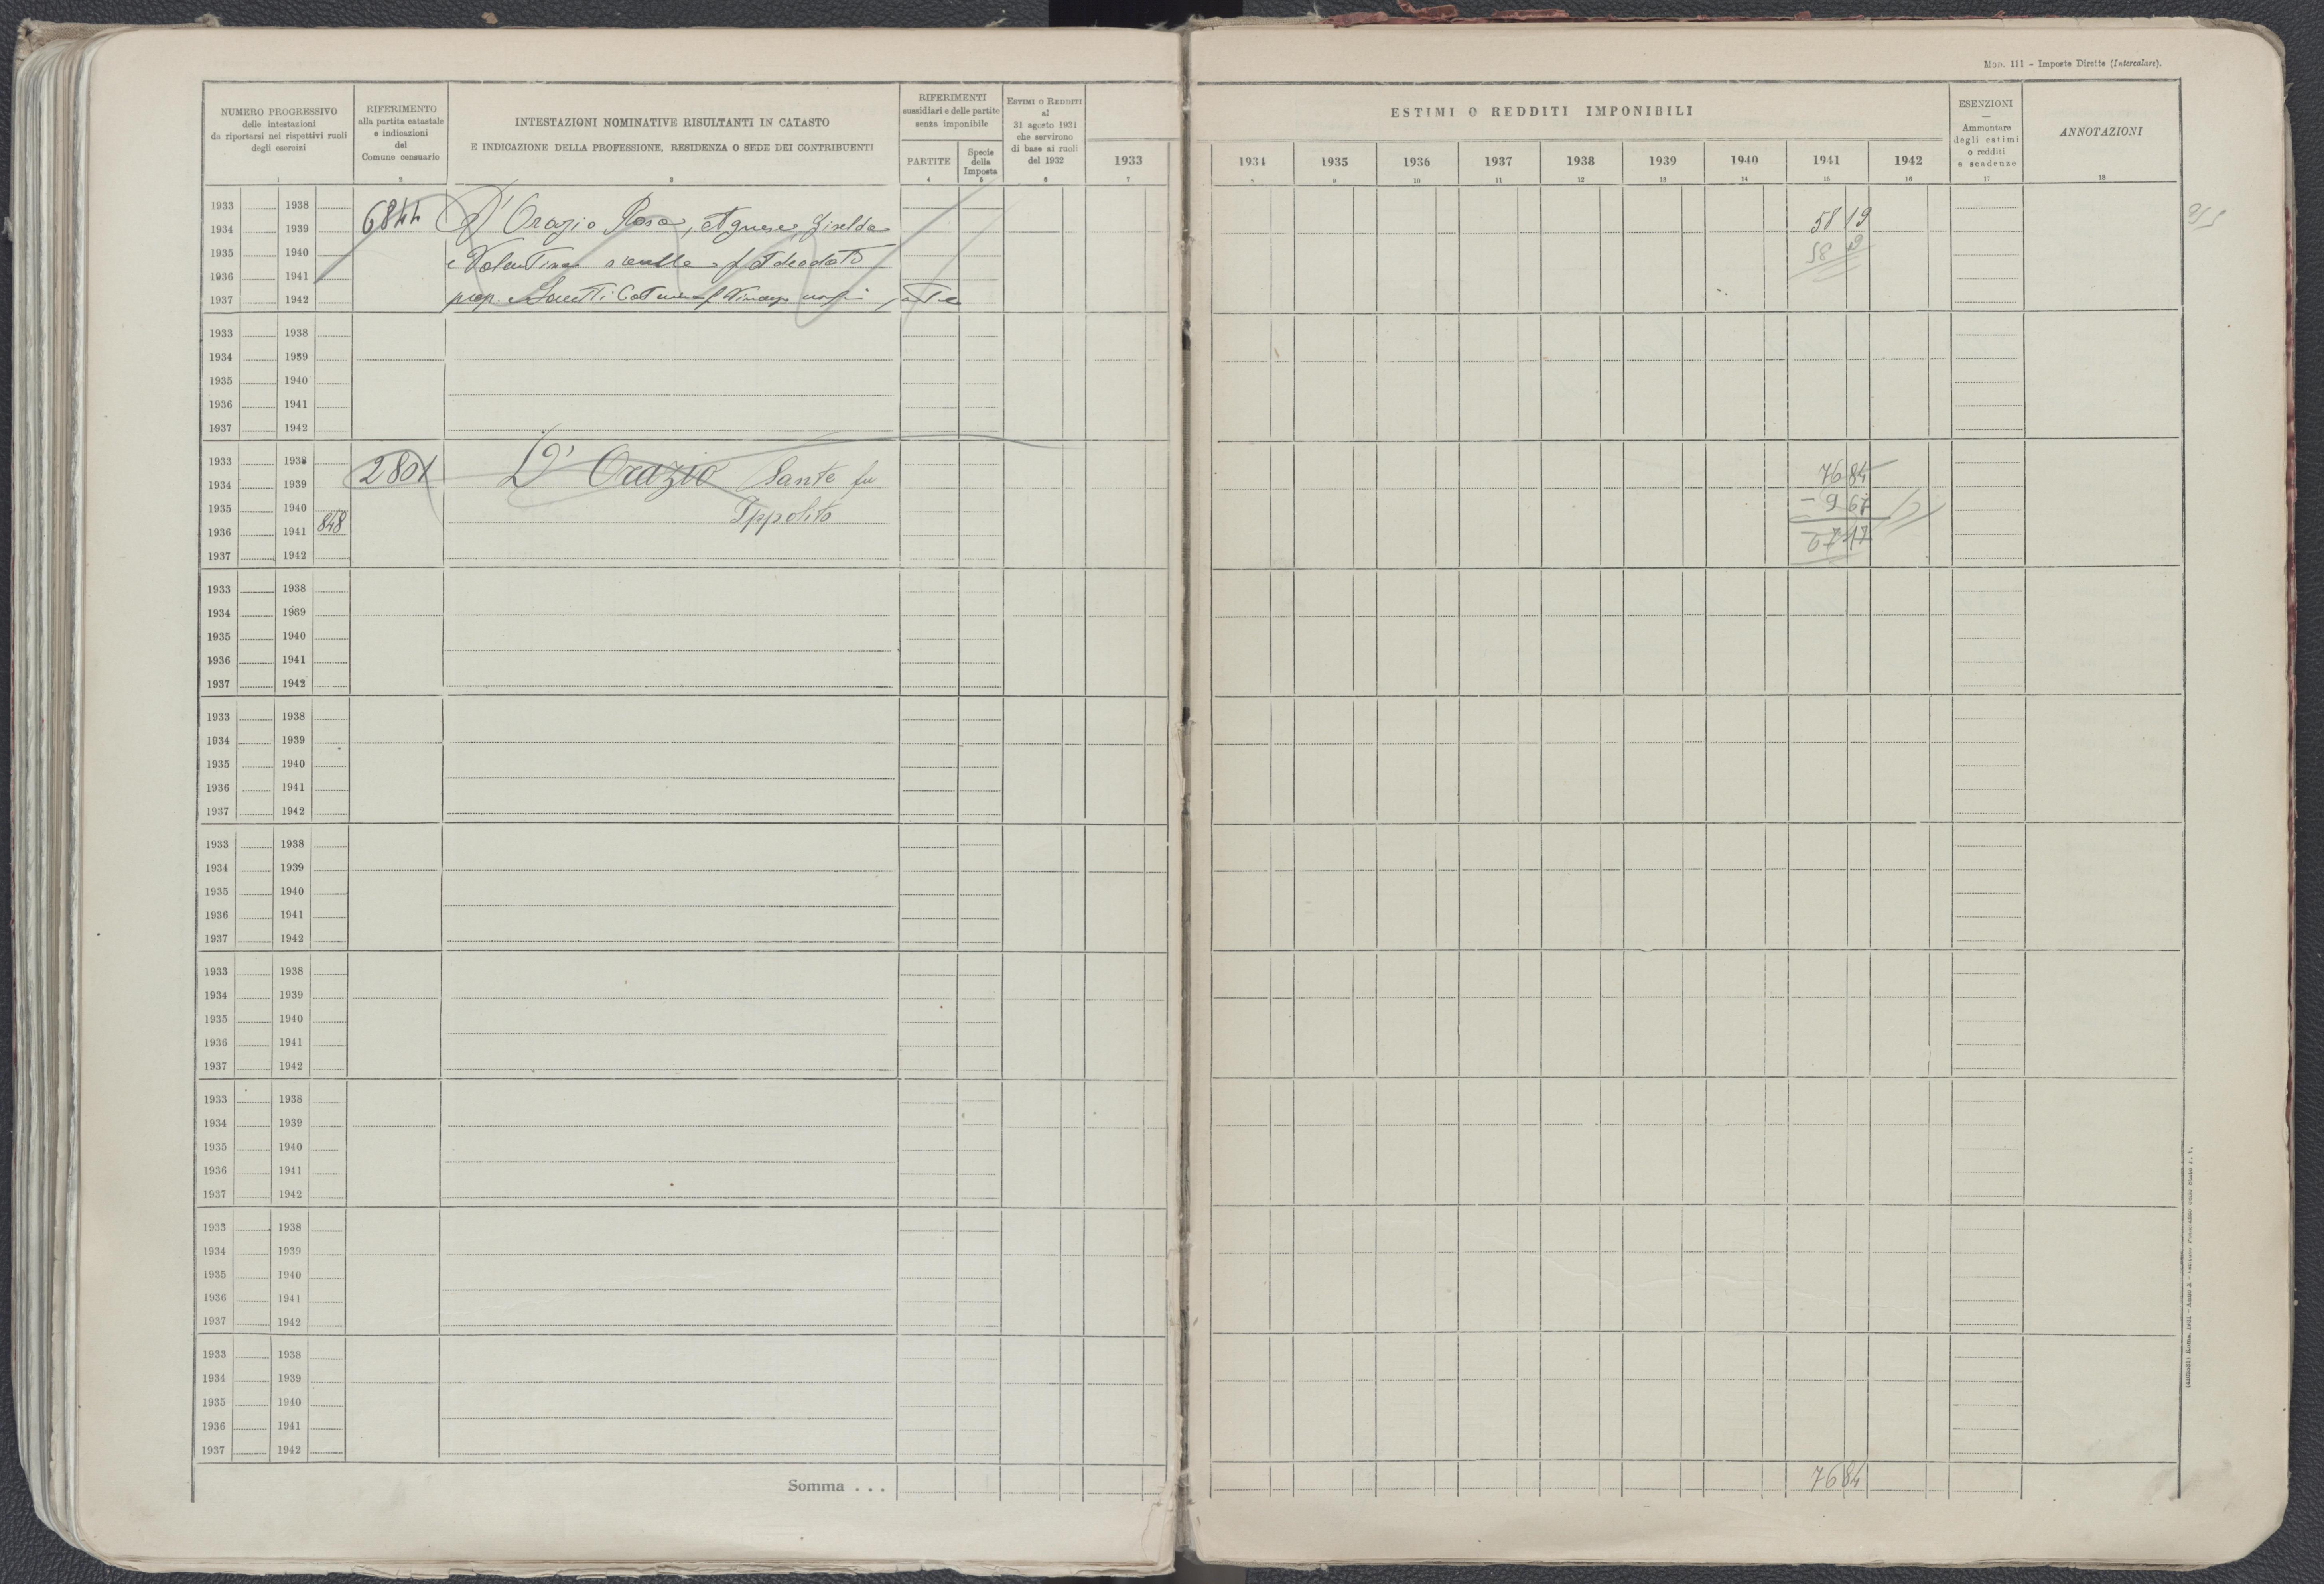 Mod. 111 - Imposte Dirette (Intercalare).
NUMERO PROGRESSIVO
delle intestazioni
da riportarsi nei rispettivi ruoli
degli esercizi
1
RIFERIMENTO
alla partita catastale
e indicazioni
del
Comune censuario
2
INTESTAZIONI NOMINATIVE RISULTANTI IN CATASTO
E INDICAZIONE DELLA PROFESSIONE, RESIDENZA O SEDE DEI CONTRIBUENTI
3
RIFERIMENTI
sussidiari e delle partite
senza imponibile
PARTITE
4
Specie
della
Imposta
5
ESTIMI O REDDITI
al
31 agosto 1931
che servirono
di base ai ruoli
del 1932
6
1933
7
ESTIMI O REDDITI IMPONIBILI
1934 1935 1936 1937 1938 1939 1940 1941 1942
9 10 11 12 13 14 15 16
ESENZIONI
Ammontare
degli estimi
o redditi
e scadenze
17
ANNOTAZIONI
18
1933 1938
1934 1939 6844 D'Orazio Rosa, Agnese, Giselda 58 19
1935 1940 e Valentina sorelle f Adeodato 58 19
1936 1941
1937 1942 prop. e
1933 1938
1934 1939
1935 1940
1936 1941
1937 1942
1933 1938
1934 1939 2801 D'Orazio Sante fu 76 84
1935 1940 Ippolito - 9 67
1936 1941 848 67 17
1937 1942
1933 1938
1934 1939
1935 1940
1936 1941
1937 1942
1933 1938
1934 1939
1935 1940
1936 1941
1937 1942
1933 1938
1934 1939
1935 1940
1936 1941
1937 1942
1933 1938
1934 1939
1935 1940
1936 1941
1937 1942
1933 1938
1934 1939
1935 1940
1936 1941
1937 1942
1933 1938
1934 1939
1935 1940
1936 1941
1937 1942
1933 1938
1934 1939
1935 1940
1936 1941
1937 1942
Somma . . . 76 84